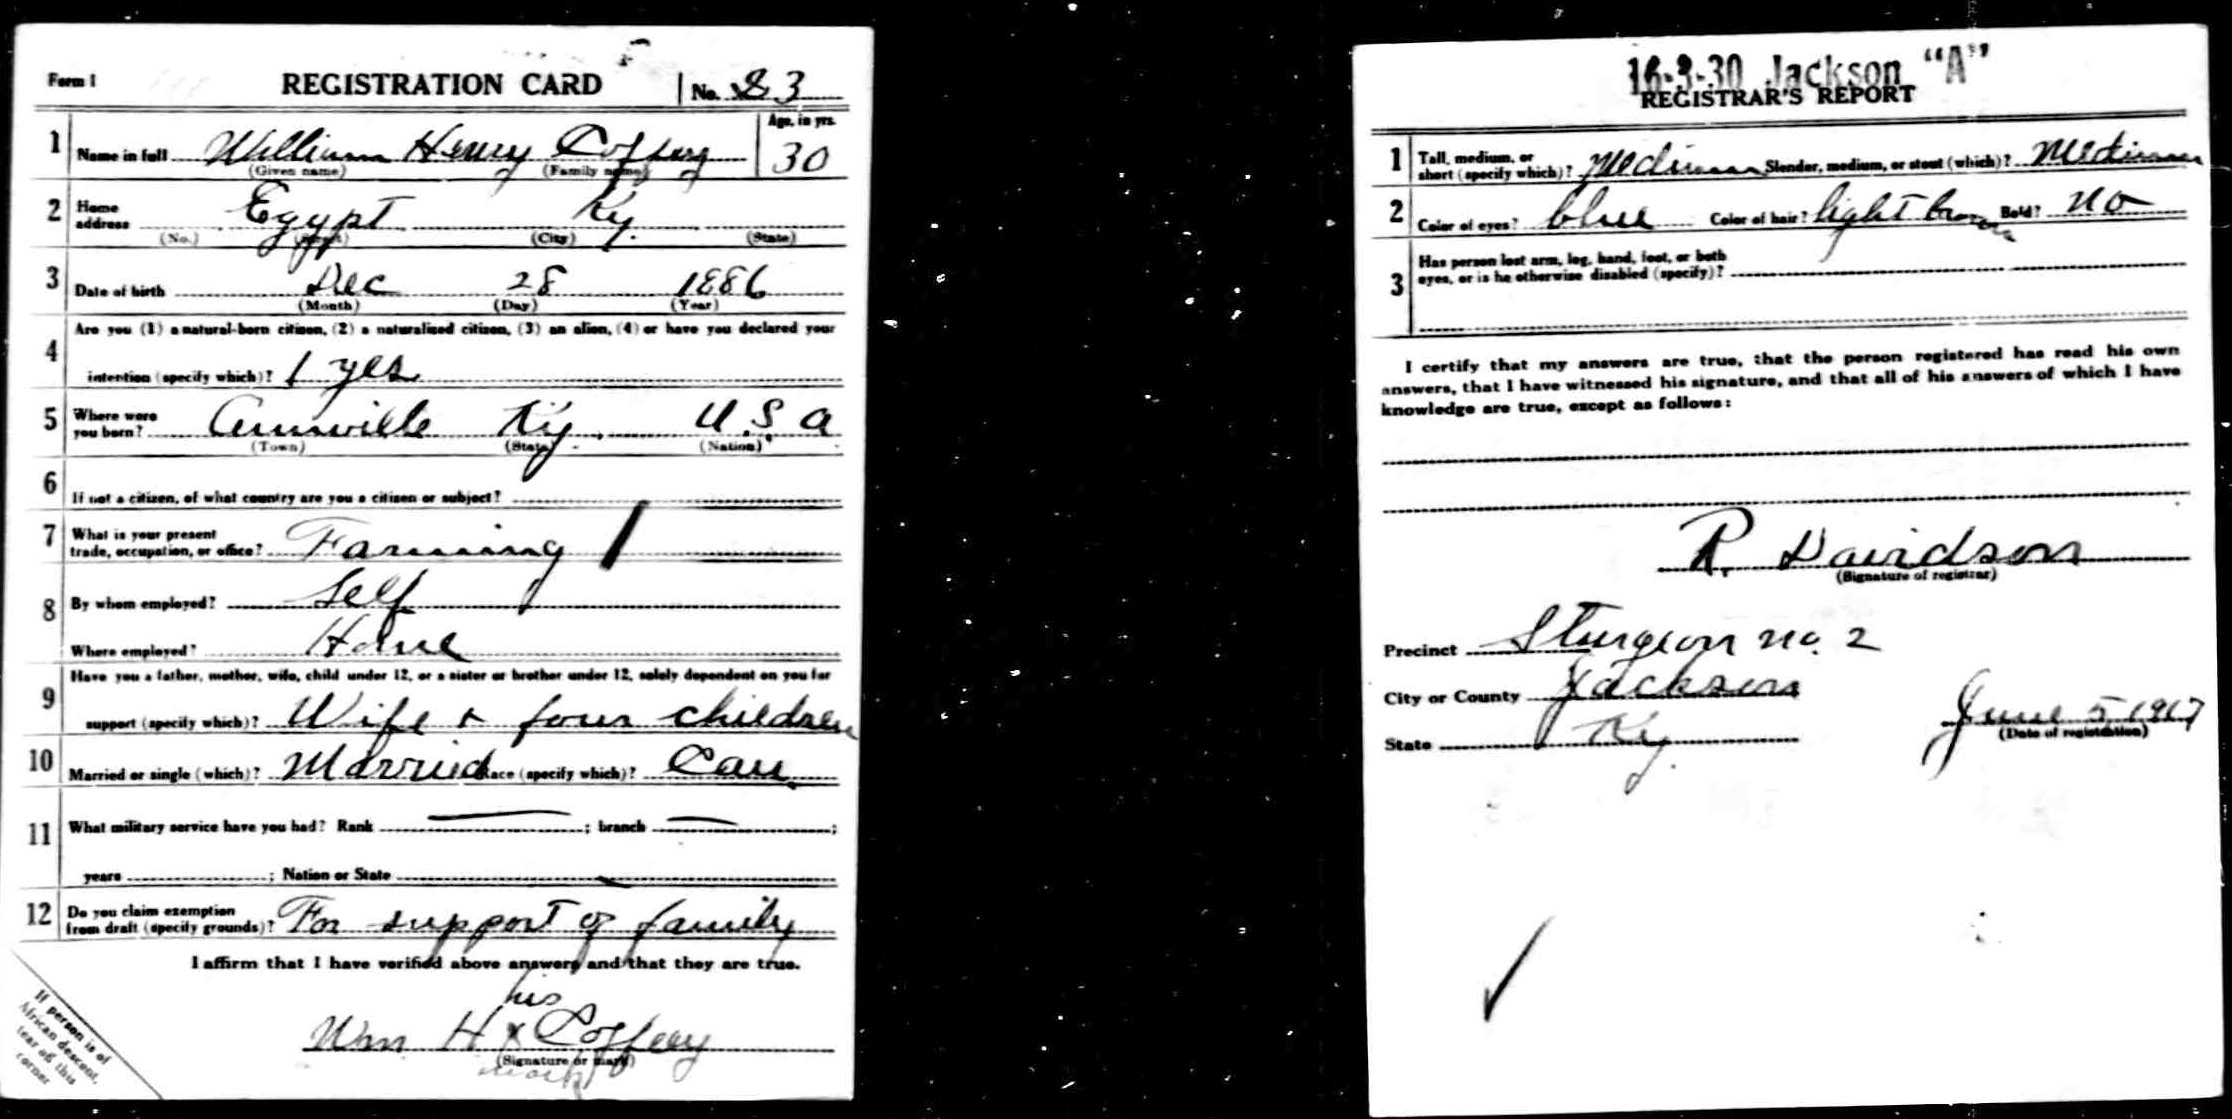 Form 1 REGISTRATION CARD No. 83
1 Name in full William Henry Coffey Age, in yrs. 30
(Given name) (Family name)
2 Home address Egypt Ky.
(No.) (Street) (City) (State)
3 Date of birth Dec 28 1886
(Month) (Day) (Year)
4 Are you (1) a natural-born citizen, (2) a naturalized citizen, (3) an alien, (4) or have you declared your
intention (specify which)? 1 yes
5 Where were you born? Annville Ky. U.S.A
(Town) (State) (Nation)
6 If not a citizen, of what country are you a citizen or subject?
7 What is your present trade, occupation, or office? Farming
8 By whom employed? Self
Where employed? Home
9 Have you a father, mother, wife, child under 12, or a sister or brother under 12, solely dependent on you for
support (specify which)? Wife + four children
10 Married or single (which)? Married Race (specify which)? Cau.
11 What military service have you had? Rank — ; branch — ;
years ; Nation or State
12 Do you claim exemption from draft (specify grounds)? For support of family
I affirm that I have verified above answers and that they are true.
his
Wm H x Coffey
(Signature or mark)
mark
If person is of
African descent,
tear off this
corner
16-3-30 Jackson "A"
REGISTRAR'S REPORT
1 Tall, medium, or short (specify which)? Medium Slender, medium, or stout (which)? Medium
2 Color of eyes? blue Color of hair? light brown Bald? no
3 Has person lost arm, leg, hand, foot, or both
eyes, or is he otherwise disabled (specify)?
I certify that my answers are true, that the person registered has read his own
answers, that I have witnessed his signature, and that all of his answers of which I have
knowledge are true, except as follows:
R. Davidson
(Signature of registrar)
Precinct Sturgeon no. 2
City or County Jackson
State Ky.
June 5 1917
(Date of registration)